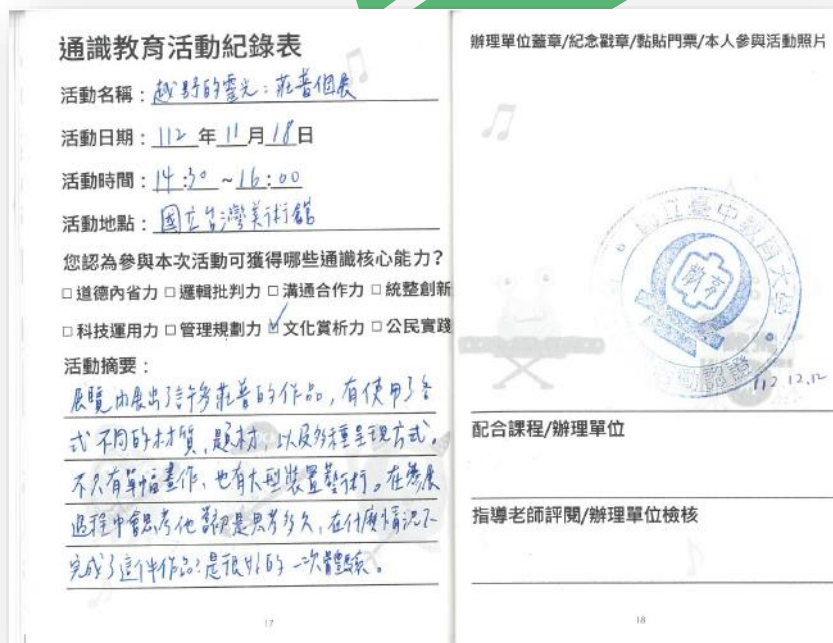 通識教育活動紀錄表
活動名稱：越野的靈光：莊普個展
活動日期：112年11月18日
活動時間：14:30~16:00
活動地點：國立台灣美術館
您認為參與本次活動可獲得哪些通識核心能力？
□道德內省力 □邏輯批判力 □溝通合作力 □統整創新
□科技運用力 □管理規劃力 ☑文化賞析力 □公民實踐
活動摘要：
展覽內展出了許多莊普的作品，有使用了各
式不同的材質、題材，以及多種呈現方式。
不只有單幅畫作，也有大型裝置藝術。在參展
過程中會思考他當初是思考多久，在什麼情況下
完成了這件作品？是很好的一次體驗。
17
辦理單位蓋章/紀念戳章/黏貼門票/本人參與活動照片
國立臺中教育大學
活動認證
112.12.12
配合課程/辦理單位
指導老師評閱/辦理單位檢核
18